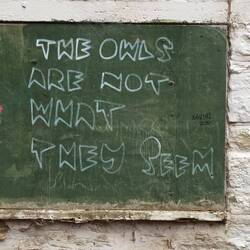 THE OWLS
ARE NOT
WHAT
THEY SEEM